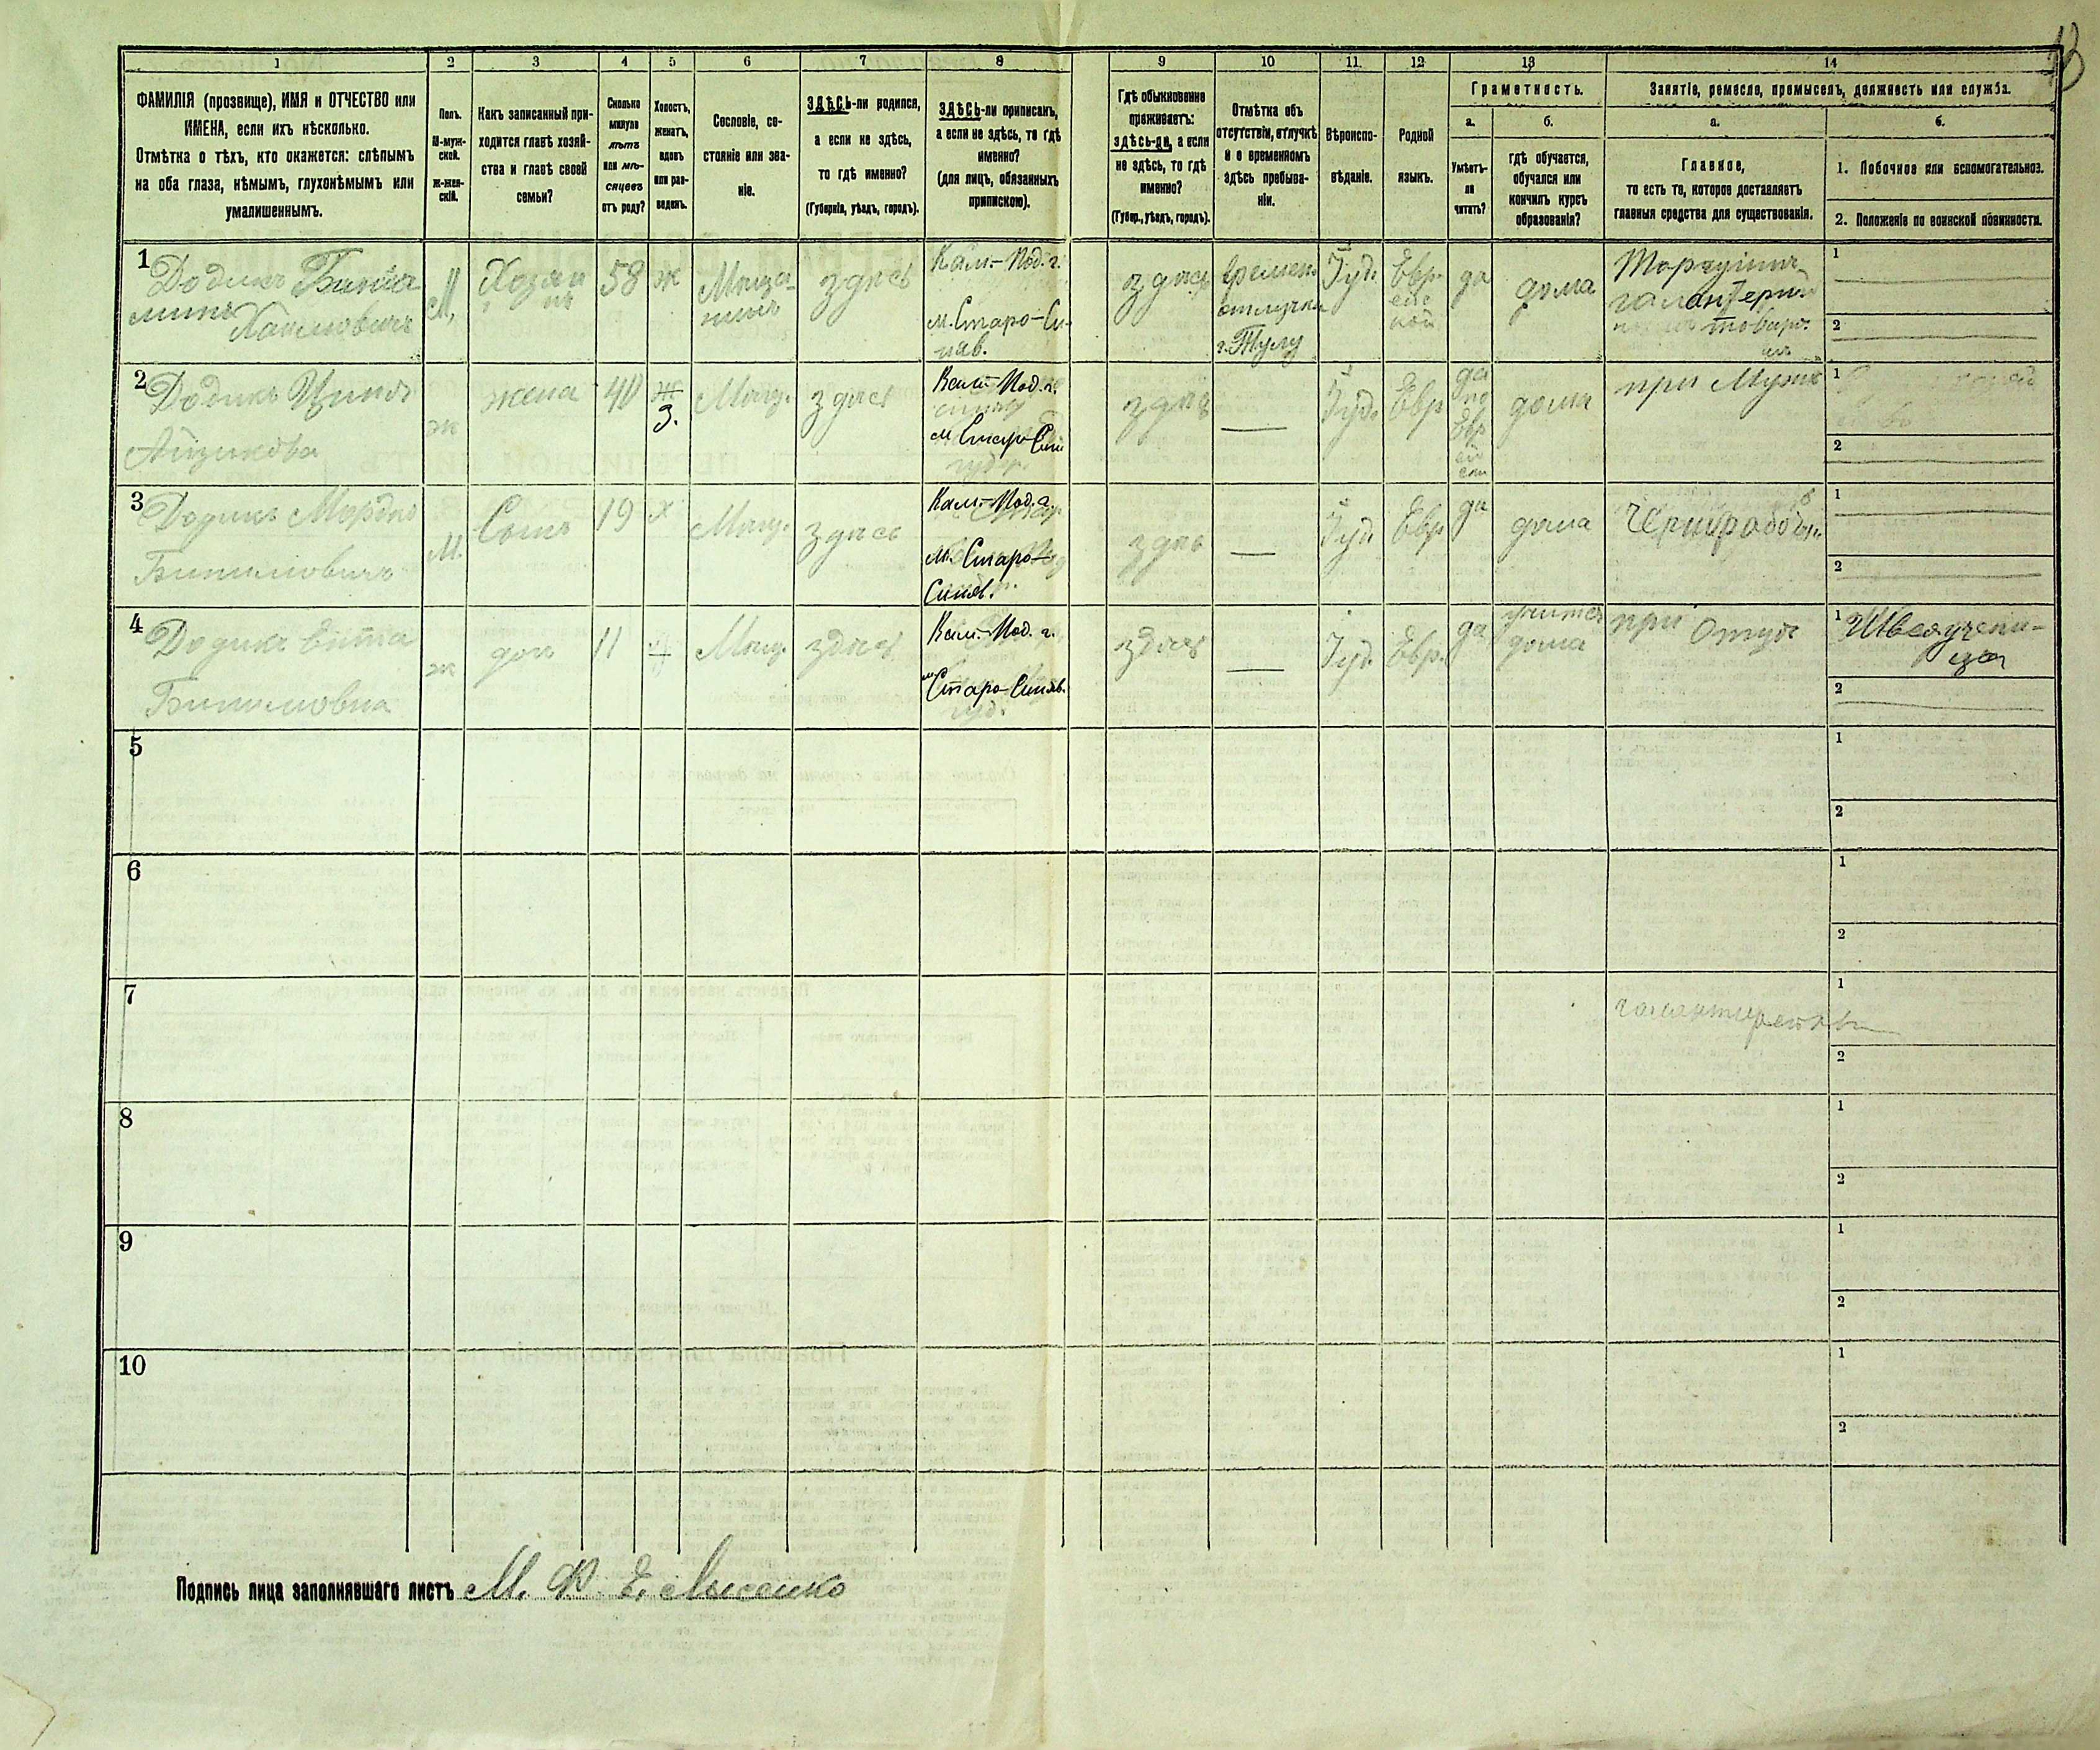 13
1 2 3 4 5 6 7 8 9 10 11 12 13 14
ФАМИЛІЯ (прозвище), ИМЯ и ОТЧЕСТВО или
ИМЕНА, если ихъ нѣсколько.
Отмѣтка о тѣхъ, кто окажется: слѣпымъ
на оба глаза, нѣмымъ, глухонѣмымъ или
умалишеннымъ.
Полъ.
М-муж-
ской.
Ж-жен-
скій.
Какъ записанный при-
ходится главѣ хозяй-
ства и главѣ своей
семьи?
Сколько
минуло
лѣтъ
или мѣ-
сяцевъ
отъ роду?
Холостъ,
женатъ,
вдовъ
или раз-
веденъ.
Сословіе, со-
стояніе или зва-
ніе.
ЗДѢСЬ-ли родился,
а если не здѣсь,
то гдѣ именно?
(Губернія, уѣздъ, городъ).
ЗДѢСЬ-ли приписанъ,
а если не здѣсь, то гдѣ
именно?
(для лицъ, обязанныхъ
припискою).
Гдѣ обыкновенно
проживаетъ:
здѣсь-ли, а если
не здѣсь, то гдѣ
именно?
(Губер., уѣздъ, городъ).
Отмѣтка объ
отсутствіи, отлучкѣ
и о временномъ
здѣсь пребыва-
ніи.
Вѣроиспо-
вѣданіе.
Родной
языкъ.
Грамотность.
а.
Умѣетъ-
ли
читать?
б.
гдѣ обучается,
обучался или
кончилъ курсъ
образованія?
Занятіе, ремесло, промыселъ, должность или служба.
а.
Главное,
то есть то, которое доставляетъ
главныя средства для существованія.
б.
1. Побочное или вспомогательное.
2. Положеніе по воинской повинности.
1
Додикъ Бинья
минъ
Хаимовичъ
М.
Хозяи
нъ
58
ж
Мѣща-
нинъ
здѣсь
Кам.-Под. г.
м. Старо-Си-
няв.
здѣсь
времен.
отлучка
г. Тулу
Іуд.
Евр
ейс
кой
да
дома
Торгуіить
галантерны
товаро.
1
2
2
Додикъ Ципа
Айзикова
ж
жена
40
ж
З.
Мѣщ.
здѣсь
Кам.-Под. г.
м. Старо-Син
здѣсь
—
Іуд.
Евр
да
по
Евр
ей
ски
дома
при Мужѣ
1
2
3
Додикъ Мордко
Биниловичъ
М.
Сынъ
19
х
Мѣщ.
здѣсь
Кам.-Под. г.
м. Старо-
Синяв.
здѣсь
—
Іуд.
Евр
да
дома
Чернорабочій
1
2
4
Додикъ Ента
Бинимовна
ж
доч
11
Мѣщ.
здѣсь
Кам.-Под. г.
м. Старо-Синяв.
здѣсь
—
Іуд.
Евр.
да
учится
дома
при Отцѣ
1 Швея учени-
ца
2
5
1
2
6
1
2
7
1
2
8
1
2
9
1
2
10
1
2
Подпись лица заполнявшаго листъ М. Ф. Е. Лысенко